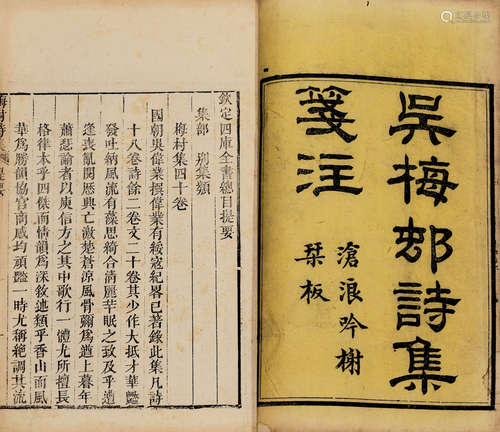 吳梅邨詩集
箋注
滄浪吟榭
栞板
欽定四庫全書總目提要
集部 別集類
梅村集四十卷
國朝吳偉業撰偉業有綏寇紀畧已著錄此集凡詩
十八卷詩餘二卷文二十卷其少作大抵才華豔
發吐納風流有藻思綺合淸麗芊眠之致及乎遭
逢喪亂閱歷興亡激楚蒼涼風骨彌爲遒上暮年
蕭瑟論者以庾信方之其中歌行一體尤所擅長
格律本乎四傑而情韻爲深敘述類乎香山而風
華爲勝韻協宮商感均頑豔一時尤稱絕調其流